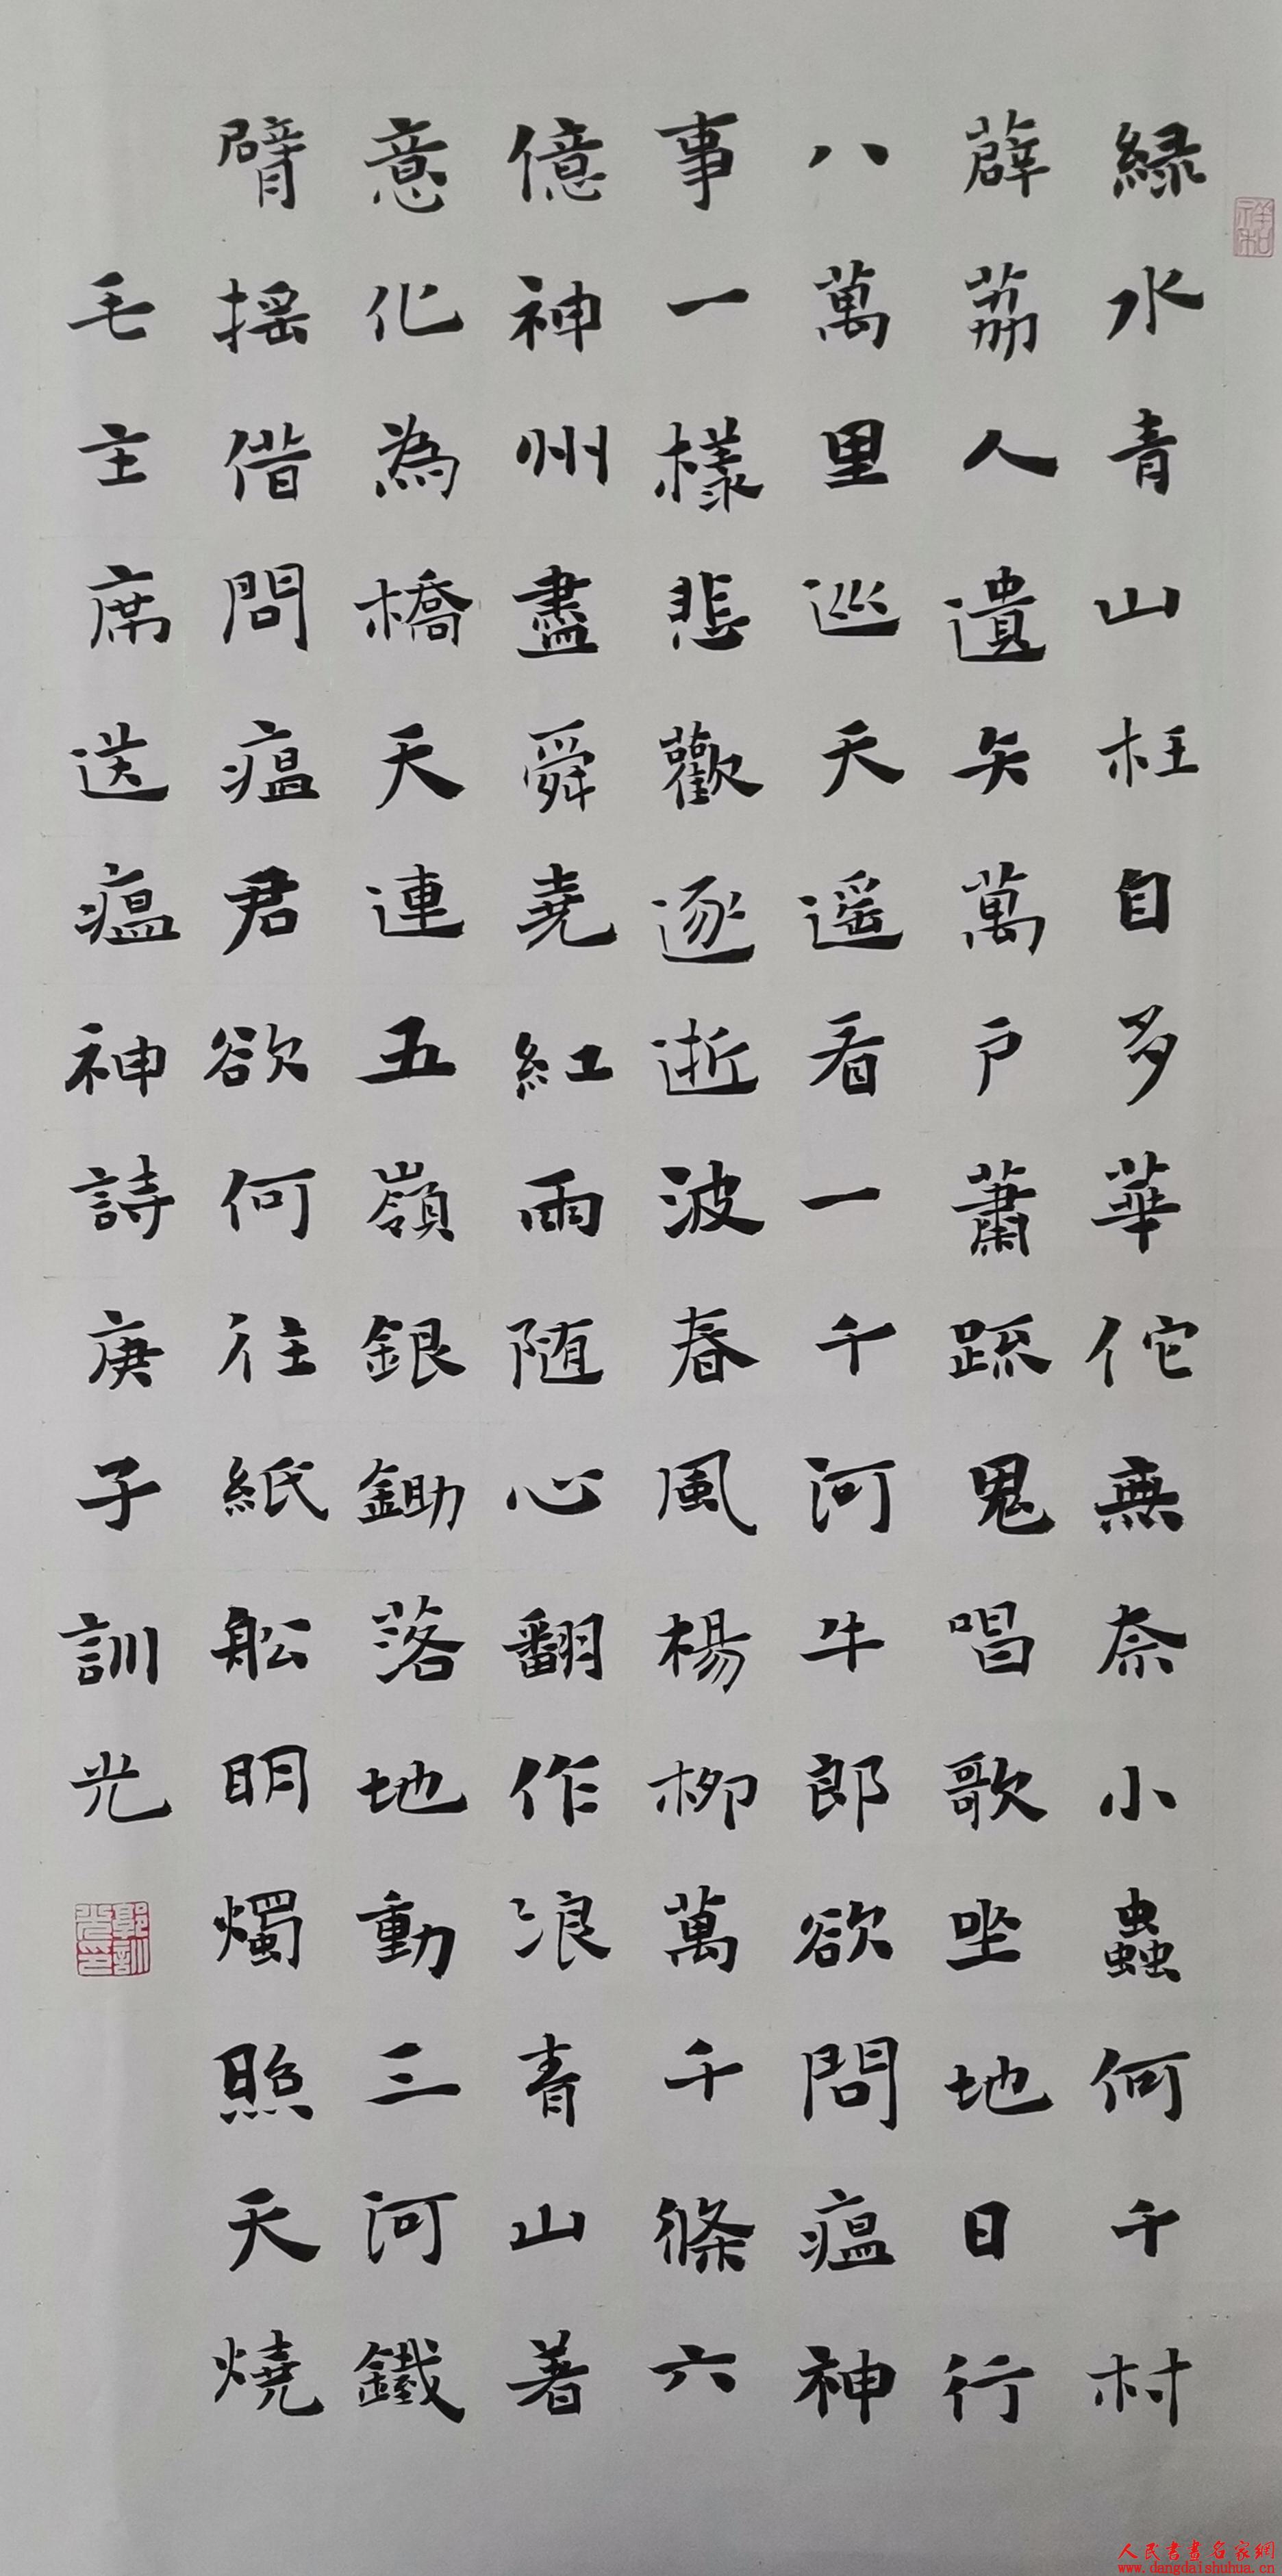 祥和
綠水青山枉自多華佗無奈小蟲何千村
薜荔人遺矢萬戶蕭踈鬼唱歌坐地日行
八萬里巡天遥看一千河牛郎欲問瘟神
事一樣悲歡逐逝波春風楊柳萬千條六
億神州盡舜堯紅雨随心翻作浪青山著
意化為橋天連五嶺銀鋤落地動三河鐵
臂揺借問瘟君欲何往紙船明燭照天燒
毛主席送瘟神詩庚子訓光
人民書畫名家網
www.dangdaishuhua.cn